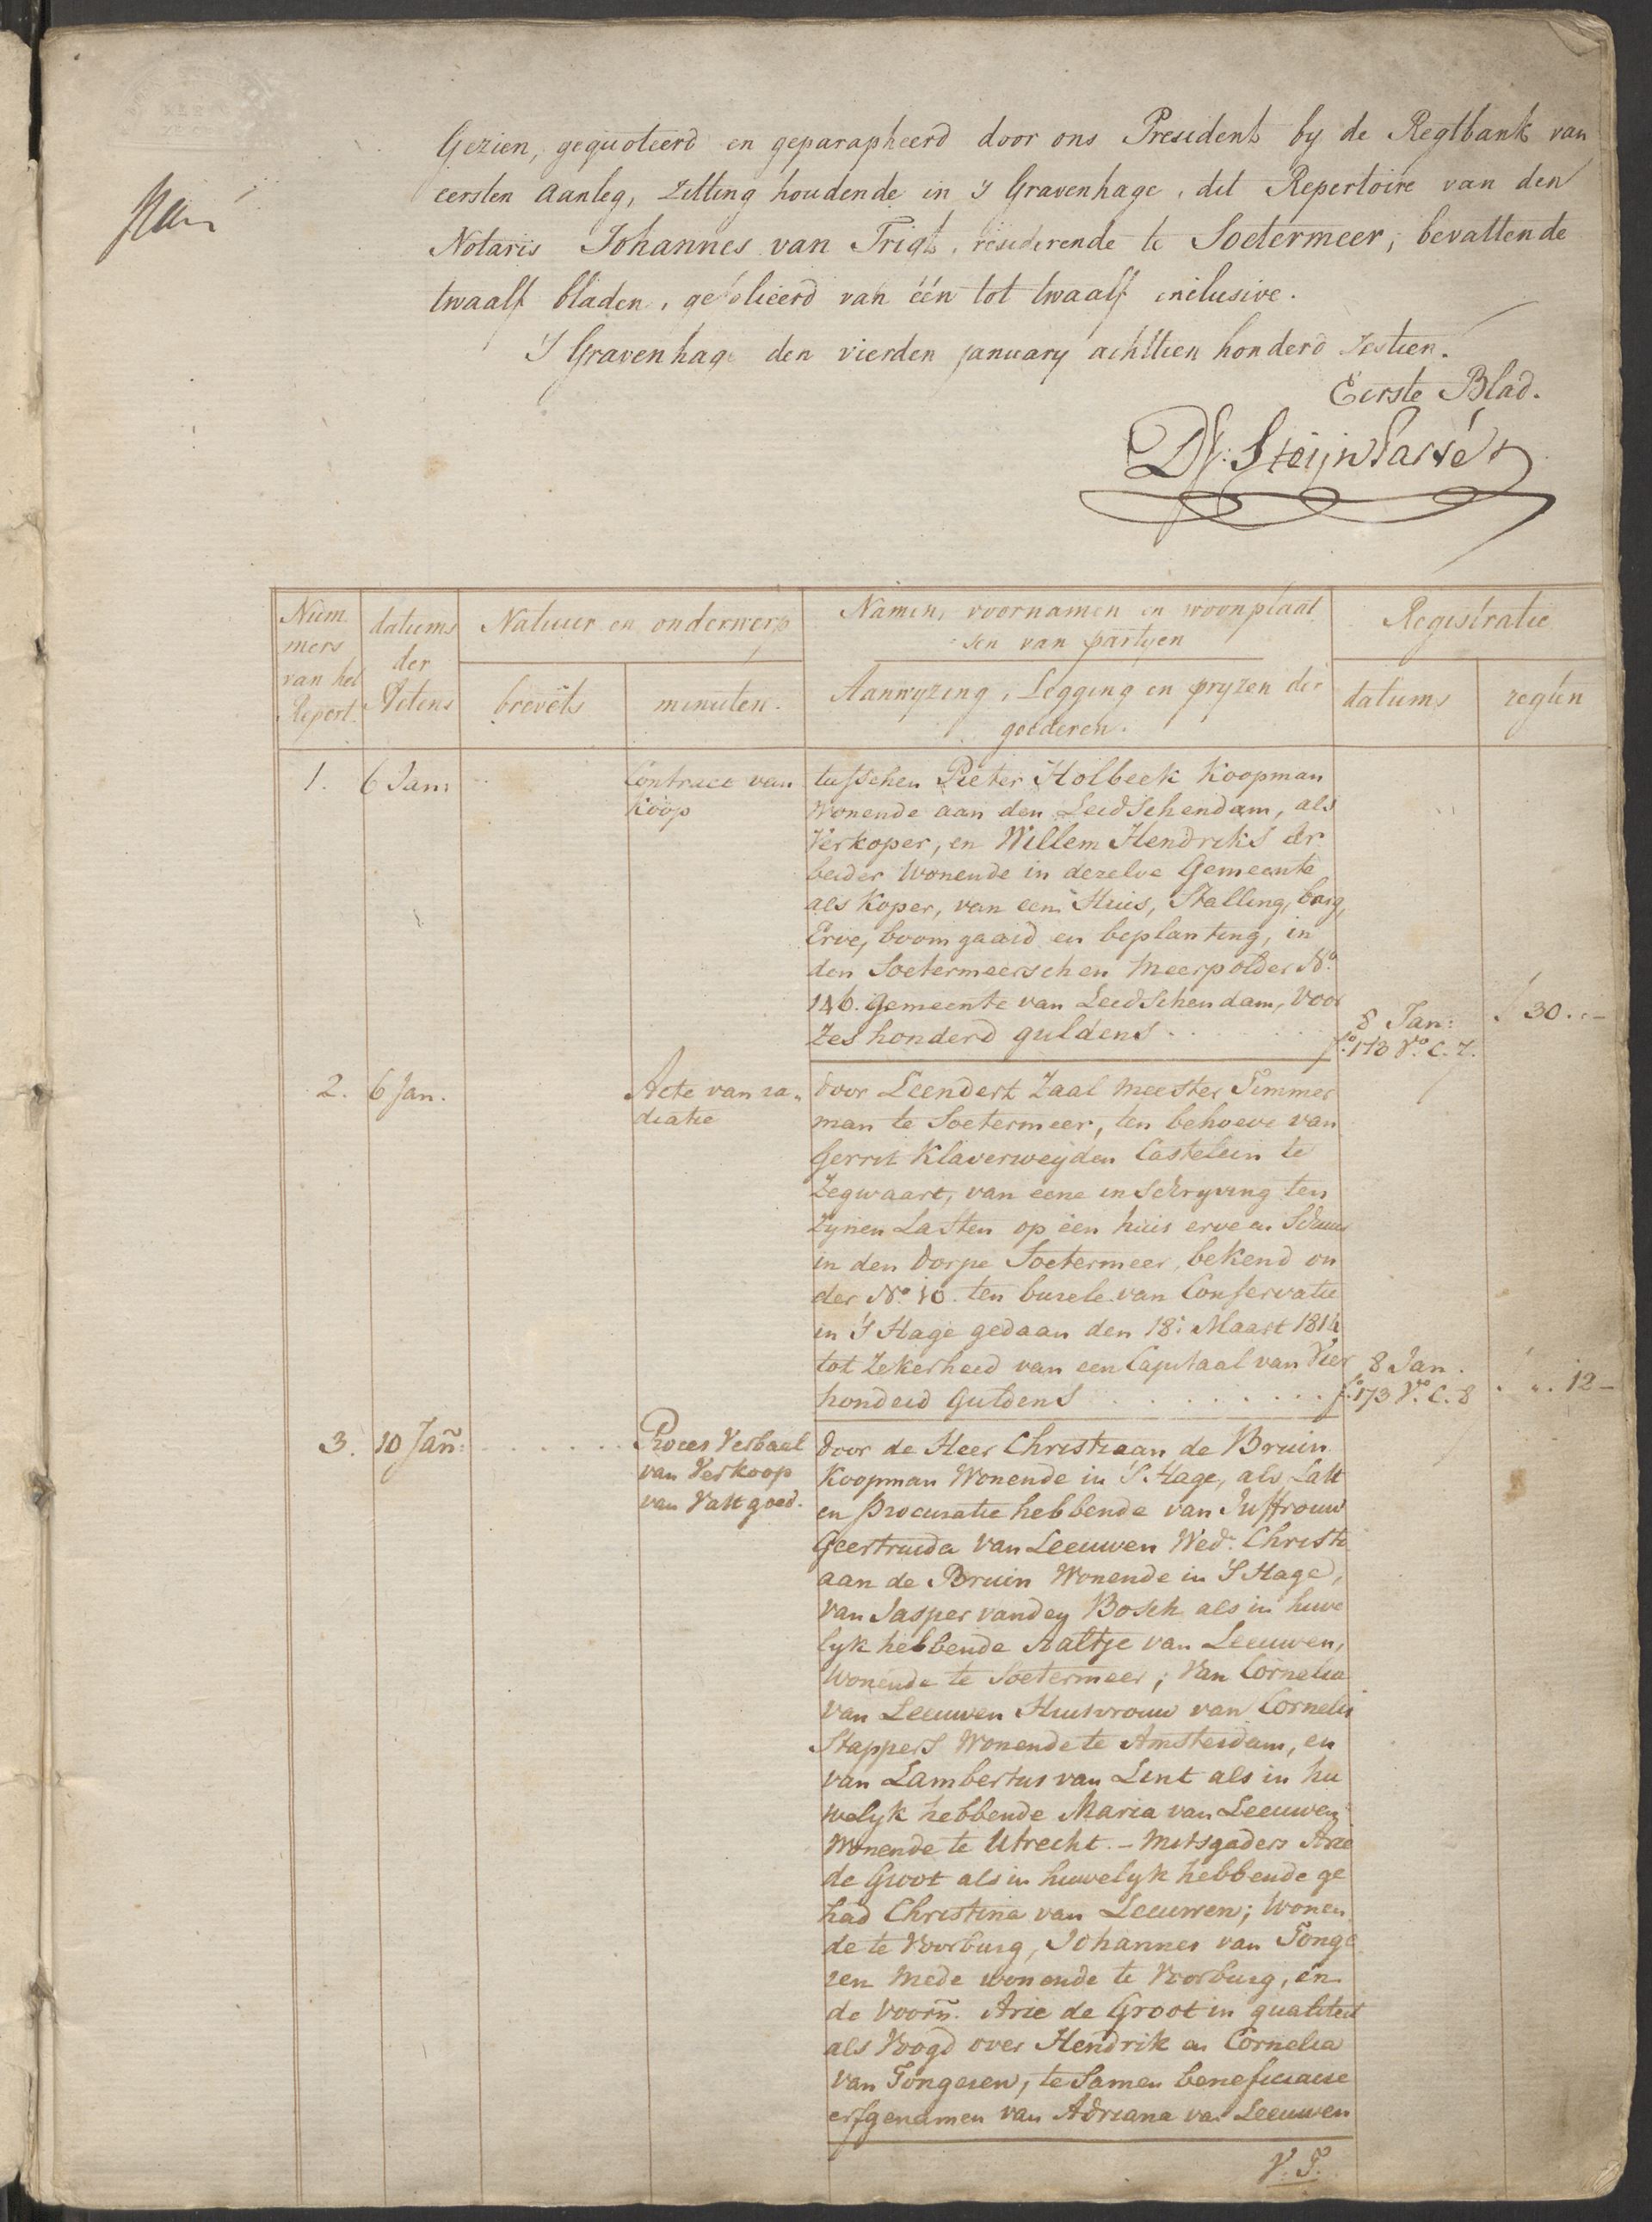 Gezien, gequoteerd en geparapheerd door ons President by de Regtbank van
eersten aanleg, zitting houdende in 's Gravenhage, dit Repertoire van den
Notaris Johannes van Trigt, residerende te Soetermeer, bevattende
twaalf bladen, gefolieerd van één tot twaalf inclusive.
's Gravenhage den vierden january achttien honderd zestien.
Eerste Blad.
Num
mers
van het
Repert.
datums
der
Actens
Natuur en onderwerp
brevêts
minuten.
Namen, voornamen en woonplaat
sen van partyen
Aanwyzing, Legging en pryzen der
goederen.
Registratie
datums
regten
1. 6 Jan:
Contract van
Koop
tusschen Pieter Holbeek Koopman
Wonende aan den Leedschendam, als
Verkoper, en Willem Hendriks Ar
beider Wonende in dezelve Gemeente
als Koper, van een Huis, Stalling, barg,
Erve, boomgaard en beplanting, in
den Soetermeerschen Meerpolder No.
146. Gemeente van Leedschendam, voor
Zes honderd guldens . .
8 Jan:
fo. 173 Vo. C. 7.
30. . –
2. 6 Jan.
Acte van ra„
diatie
door Leendert Zaal Meester Timmer
man te Soetermeer, ten behoeve van
Gerrit Klaverweyden Castelein te
Zegwaart, van eene inschryving ten
Zynen Lasten op een huis erve en Schuur
in den Dorpe Soetermeer, bekend on
der No. 10. ten burele van Conservatie
in 's Hage gedaan den 18: Maart 1814
tot Zekerheid van een Capitaal van Vier
honderd Guldens . . . . . . .
8 Jan.
fo. 173 Vo. C. 8
. „. 12 –
3. 10 Jan: . . . . .
Proces Verbaal
van Verkoop
van Vastgoed.
door de Heer Christiaan de Bruin
Koopman Wonende in 's Hage, als Last
en Procuratie hebbende van Juffrouw
Geertruida van Leeuwen Wed. Christi
aan de Bruin Wonende in 's Hage,
Van Jasper vanden Bosch als in huwe
lyk hebbende Aaltje van Leeuwen,
Wonende te Soetermeer; Van Cornelia
van Leeuwen Huisvrouw van Cornelis
Stappers Wonende te Amsterdam, en
van Lambertus van Lint als in hu
welyk hebbende Maria van Leeuwen
Wonende te Utrecht. – Mitsgaders Arie
de Groot als in huwelyk hebbende ge
had Christina van Leeuwen; Wonen
de te Voorburg, Johannes van Tonge
ren Mede wonende te Voorburg, en
de Voorn. Arie de Groot in qualiteit
als Voogd over Hendrik en Cornelia
van Tongeren, te Samen beneficiaire
erfgenamen van Adriana van Leeuwen
V. T.